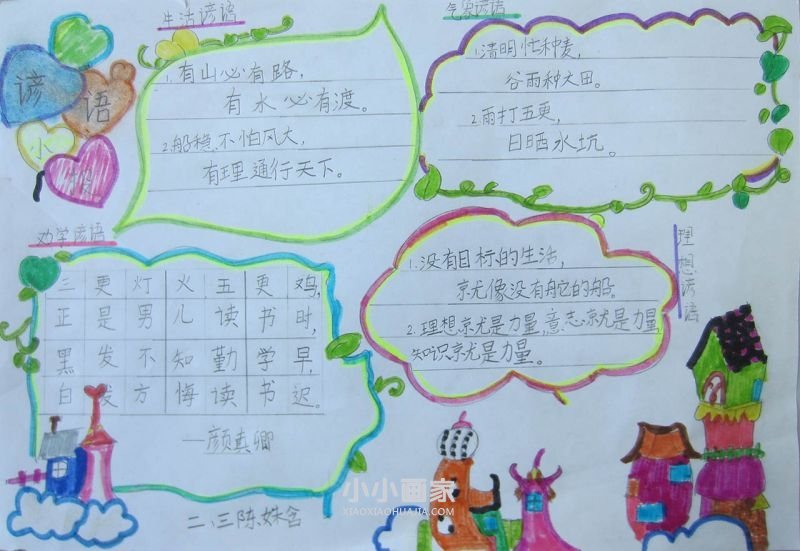 谚
语
小
报
生活谚语
1.有山必有路,
有水必有渡。
2.船稳不怕风大,
有理通行天下。
气象谚语
1.清明忙种麦,
谷雨种大田。
2.雨打五更,
日晒水坑。
劝学谚语
三更灯火五更鸡,
正是男儿读书时,
黑发不知勤学早,
白发方悔读书迟。
—颜真卿
理想谚语
1.没有目标的生活,
就像没有舵的船。
2.理想就是力量,意志就是力量,
知识就是力量。
二、三陈姝含
小小画家
XIAOXIAOHUAJIA.COM